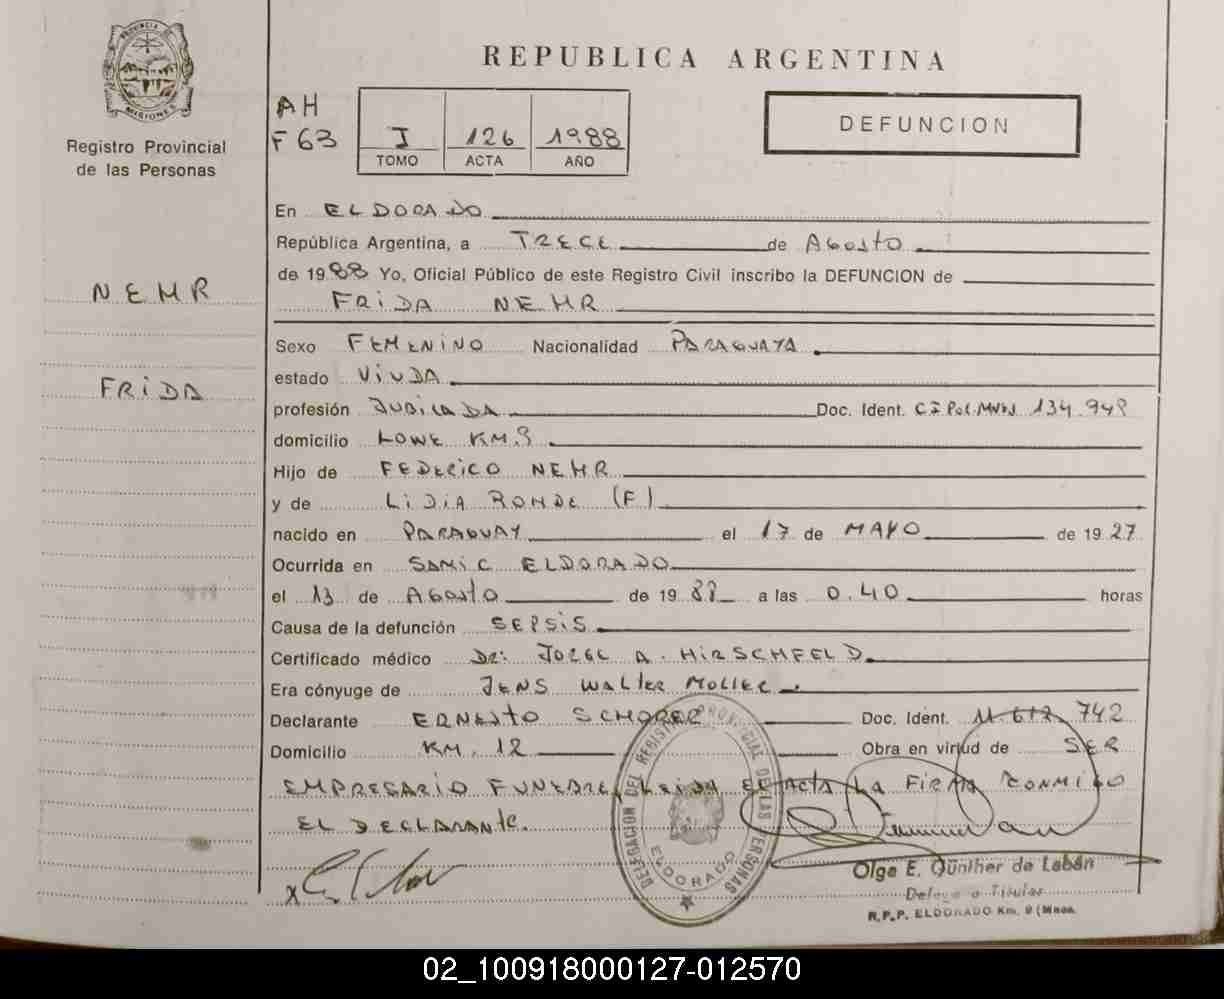 PROVINCIA DE
MISIONES
Registro Provincial
de las Personas
NEMR
FRIDA
REPUBLICA ARGENTINA
AH
F 63
I 126 1988
TOMO ACTA AÑO
DEFUNCION
En ELDORADO
República Argentina, a TRECE de AGOSTO
de 1988 Yo, Oficial Público de este Registro Civil inscribo la DEFUNCION de
FRIDA NEMR
Sexo FEMENINO Nacionalidad PARAGUAYA
estado VIUDA
profesión JUBILADA Doc. Ident. CI Pol. MNES 134.949
domicilio LOWE KM.9
Hijo de FEDERICO NEMR
y de LIDIA ROHDE (F)
nacido en PARAGUAY el 17 de MAYO de 1927
Ocurrida en SAMIC ELDORADO
el 13 de AGOSTO de 1988 a las 0.40 horas
Causa de la defunción SEPSIS
Certificado médico Dr: JORGE A. HIRSCHFELD
Era cónyuge de JENS WALTER MOLLER
Declarante ERNESTO SCHORER Doc. Ident. 11.612.742
Domicilio KM. 12 Obra en virtud de SER
EMPRESARIO FUNEBRE, LEIDA EL ACTA LA FIRMA CONMIGO
EL DECLARANTE.
DELEGACION DEL REGISTRO PROVINCIAL DE LAS PERSONAS
ELDORADO
Olga E. Günther de Labán
Delegada Titular
R.P.P. ELDORADO Km. 9 (Mnes.
02_100918000127-012570